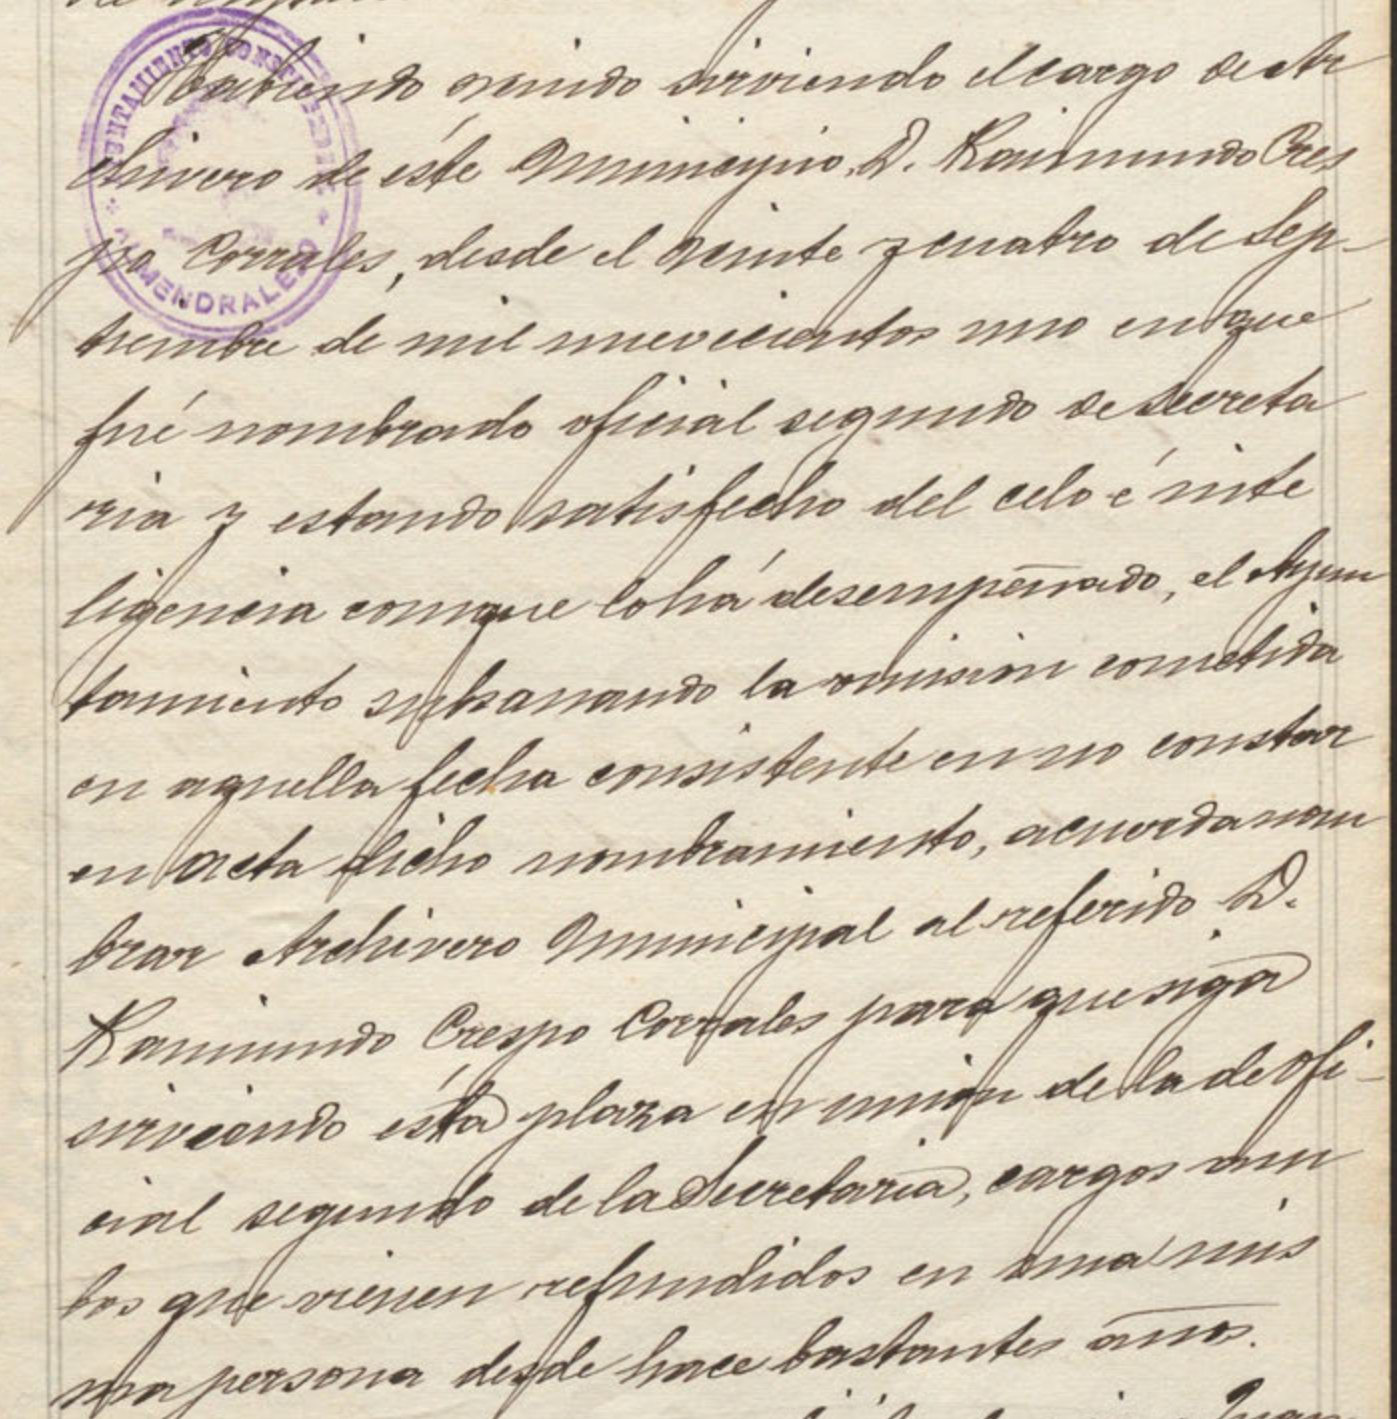 AYUNTAMIENTO CONSTITUCIONAL
ALMENDRALEJO
Habiendo venido sirviendo el cargo de Ar
chivero de éste Municipio, D. Raimundo Cres
po Corrales, desde el veinte y cuatro de Sep-
tiembre de mil nuevecientos uno en que
fué nombrado oficial segundo de Secreta
ria y estando satisfecho del celo é inte
ligencia conque lo há desempeñado, el Ayun
tamiento subsanando la omision cometida
en aquella fecha consistente en no constar
en acta dicho nombramiento, acuerda nom
brar Archivero Municipal al referido D.
Raimundo Crespo Corrales para que siga
sirviendo ésta plaza en union de la de ofi-
cial segundo de la Secretaria, cargos am
bos que vienen refundidos en una mis
ma persona desde hace bastantes años.